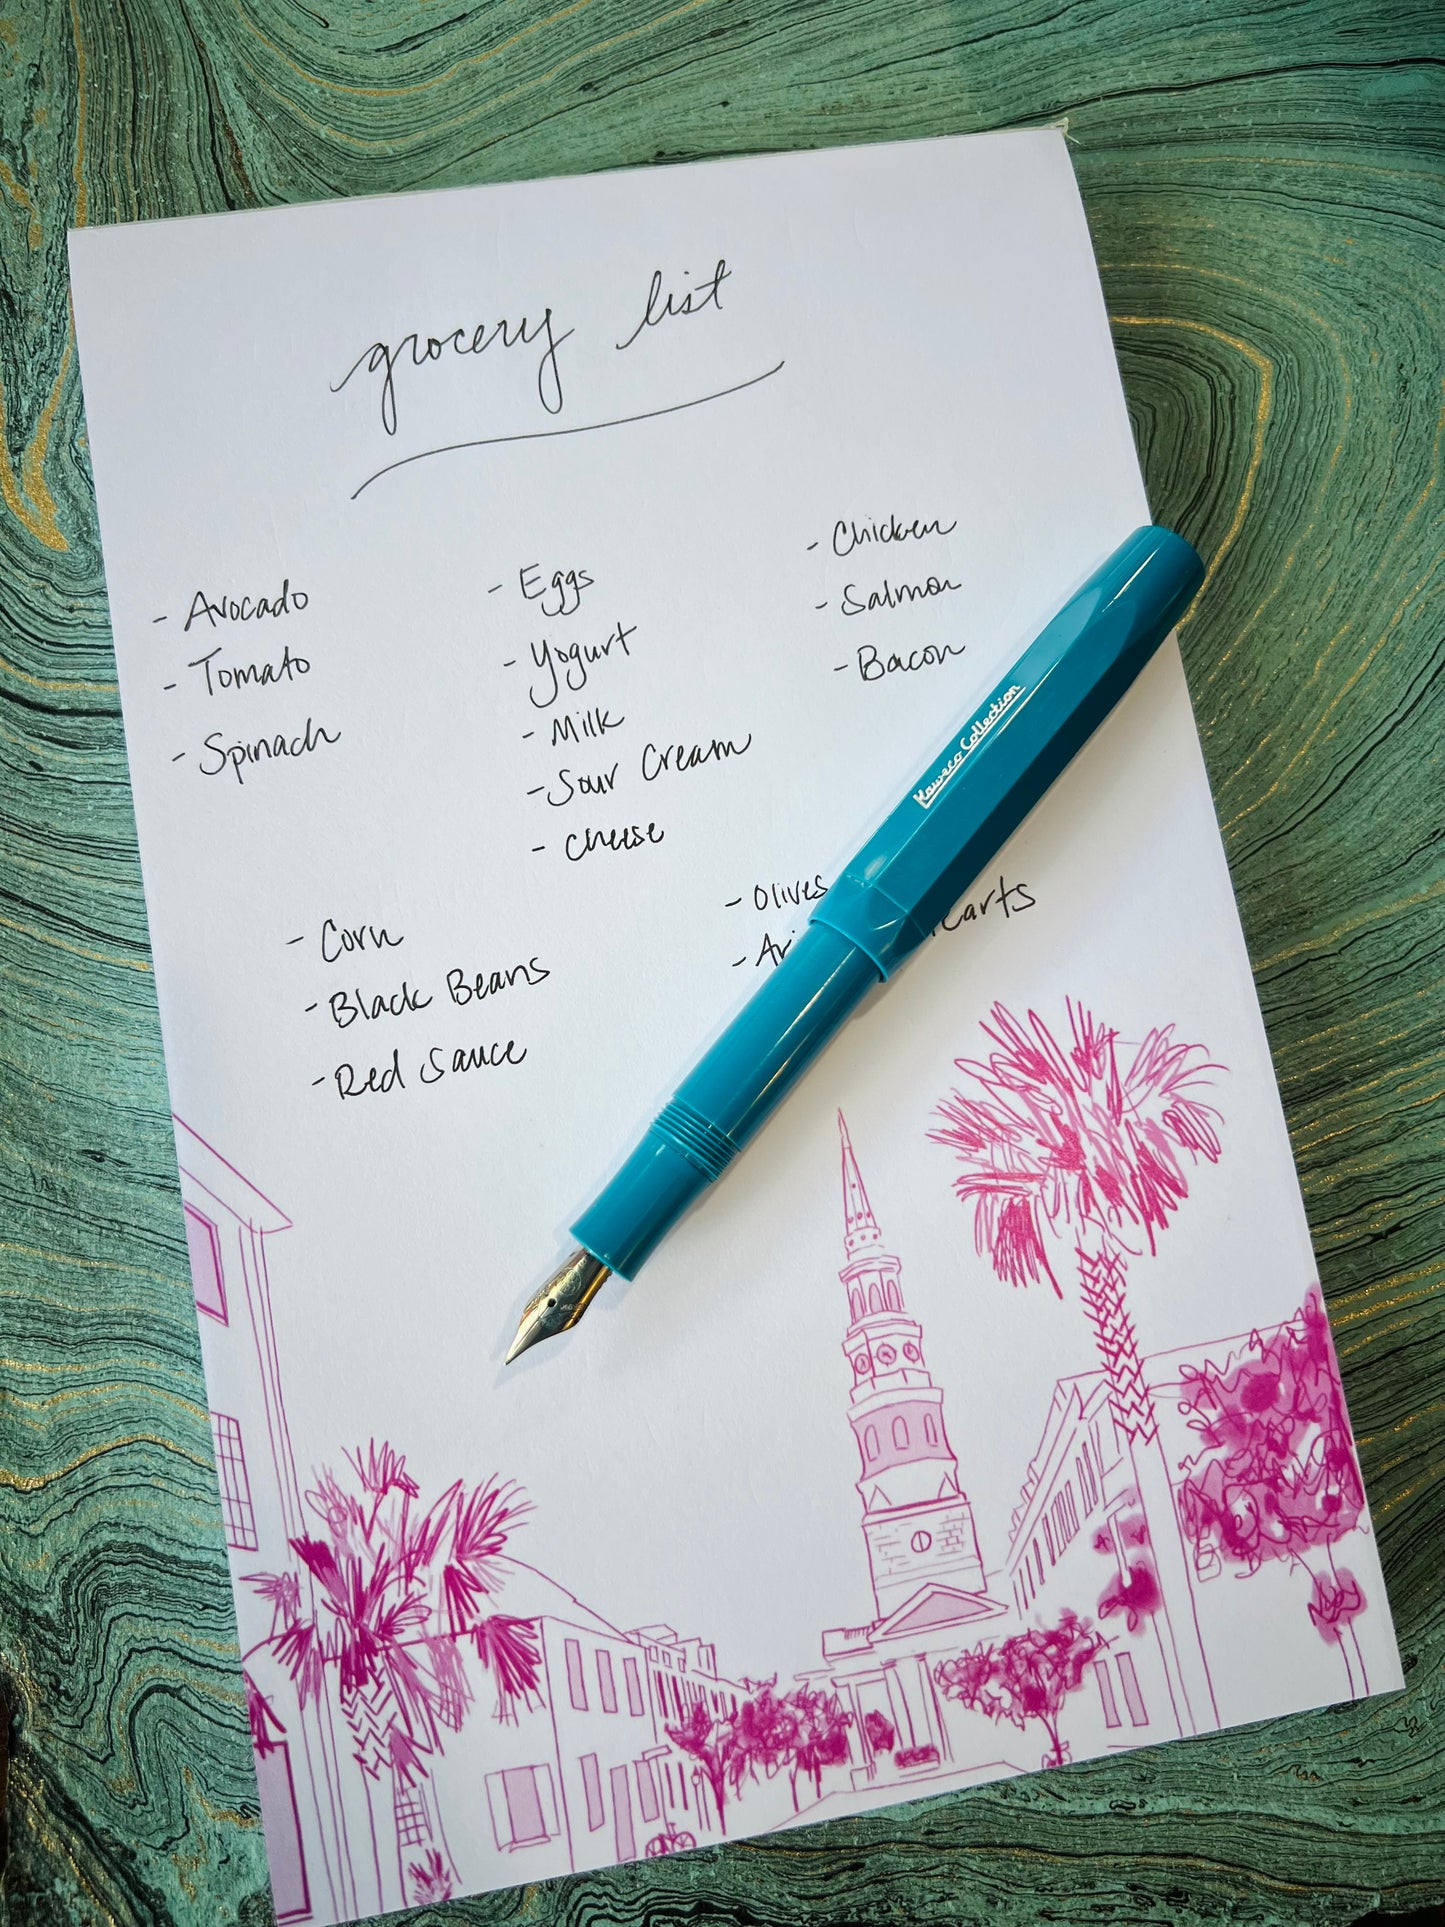 grocery list
- Avocado
- Tomato
- Spinach
- Eggs
- Yogurt
- Milk
- Sour Cream
- Cheese
- Chicken
- Salmon
- Bacon
- Corn
- Black Beans
- Red Sauce
- Olives
-
Kaweco Collection